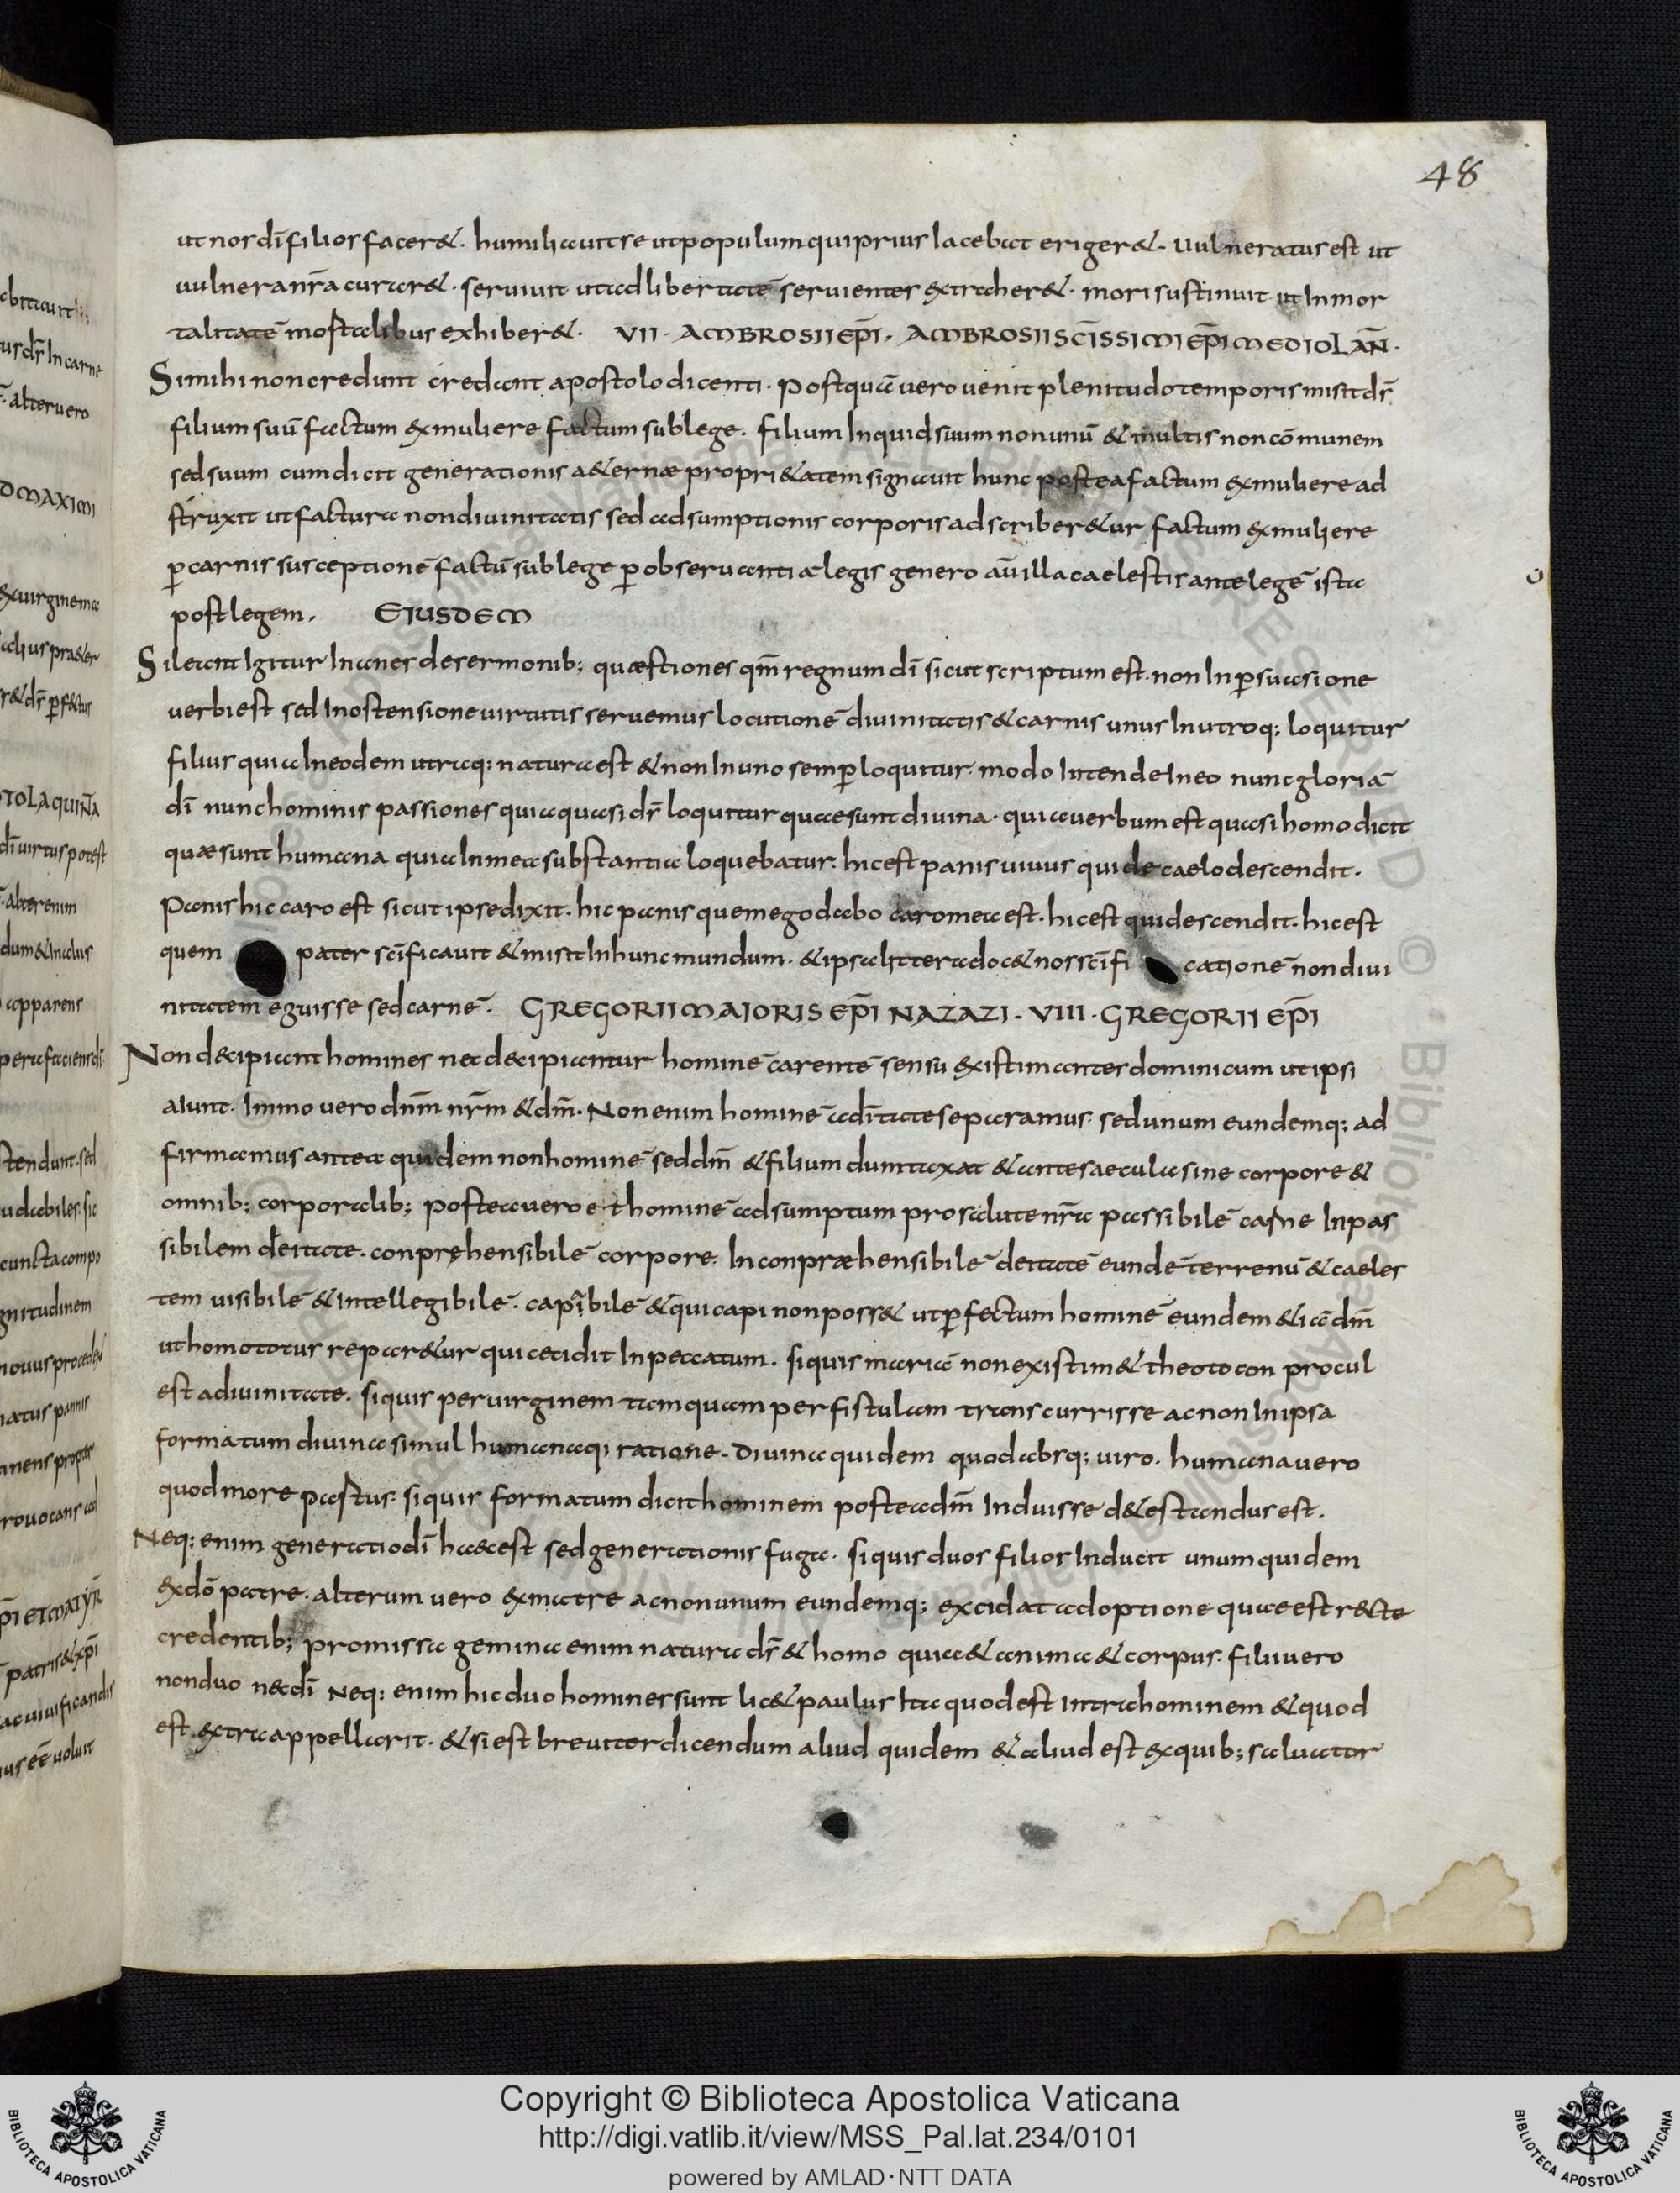 48
ut nos dī filios facer&. humiliauit se ut populum qui prius Iacebat eriger&. Uulneratus est ut
uulnera nr̄a curar&. seruiuit ut ad libertatē seruientes extraher&. mori sustinuit ut Inmor
talitatē moſtalibus exhiber&. VII. AMBROSII EP̄I. AMBROSII SC̄ISSIMI EP̄I MEDIOLAN̄.
Si mihi non credunt credant apostolo dicenti. Postquā uero uenit plenitudo temporis misit dr̄
filium suū factum ex muliere factum sub lege. filium Inquid suum non unū & multis non cōmunem
sed suum cum dicit generationis a&ernæ propri&atem signauit hunc postea factum ex muliere ad
struxit ut factura non diuinitatis sed adsumptionis corporis adscriber&ur factum ex muliere
p̄ carnis susceptionē factū sub lege p̄ obseruantiā legis genero aū illa caelestis ante legē ista
post legem. EIUSDEM
Sileant Igitur Inanes de sermonib; quæstiones qm̄ regnum dī sicut scriptum est. non In p̄suasione
uerbi est sed In ostensione uirtutis seruemus locutionē diuinitatis & carnis unus In utroq; loquitur
filius quia In eodem utraq; natura est & non In uno semp̄ loquitur. modo Intende In eo nunc gloriā
dī nunc hominis passiones quia quasi dr̄ loquitur quae sunt diuina. quia uerbum est quasi homo dicit
quæ sunt humana quia In mea substantia loquebatur. hic est panis uiuus qui de caelo descendit.
Panis hic caro est sicut ipse dixit. hic panis quem ego dabo caro mea est. hic est qui descendit. hic est
quem pater sc̄ificauit & misit In hunc mundum. & ipsa littera doc& nos sc̄ifi cationē non diui
nitatem eguisse sed carnē. GREGORII MAIORIS EP̄I NAZAZI. VIII. GREGORII EP̄I
Non decipiant homines nec decipiantur hominē carentē sensu existimantes dominicum ut ipsi
aiunt. Immo uero dnm̄ nr̄m & dm̄. Non enim hominē a dītate separamus. sed unum eundemq; ad
firmamus antea quidem non hominē sed dm̄ & filium dumtaxat & ante saecula sine corpore &
omnib; corporalib; postea uero et hominē adsumptum pro salute nr̄a passibilē carne Inpas
sibilem deitate. conprehensibilē corpore. Inconpræhensibilē deitatē eundē terrenū & caeles
tem uisibilē & intellegibilē. capibilē & qui capi non poss& ut p̄fectum hominē eundem & iā dm̄
ut homo totus repar&ur qui cecidit In peccatum. si quis mariā non existim& theotocon procul
est a diuinitate. si quis per uirginem tamquam per fistulam transcurrisse ac non In ipsa
formatum diuina simul humanaqi ratione. Diuina quidem quod absq; uiro. humana uero
quod more pastus. si quis formatum dicit hominem postea dm̄ Induisse d&estandus est.
Neq; enim generatio dī haec est sed generationis fuga. si quis duos filios Inducit unum quidem
ex dō patre. alterum uero ex matre ac non unum eundemq; excidat adoptione quae est recte
credentib; promissa gemina enim natura dr̄ & homo quia & anima & corpus. filii uero
non duo nec dī Neq; enim hic duo homines sunt lic& paulus Ita quod est Intra hominem & quod
est extra appellarit. & si est breuiter dicendum aliud quidem & aliud est ex quib; saluator
Copyright © Biblioteca Apostolica Vaticana
http://digi.vatlib.it/view/MSS_Pal.lat.234/0101
powered by AMLAD·NTT DATA
BIBLIOTECA APOSTOLICA VATICANA
BIBLIOTECA APOSTOLICA VATICANA